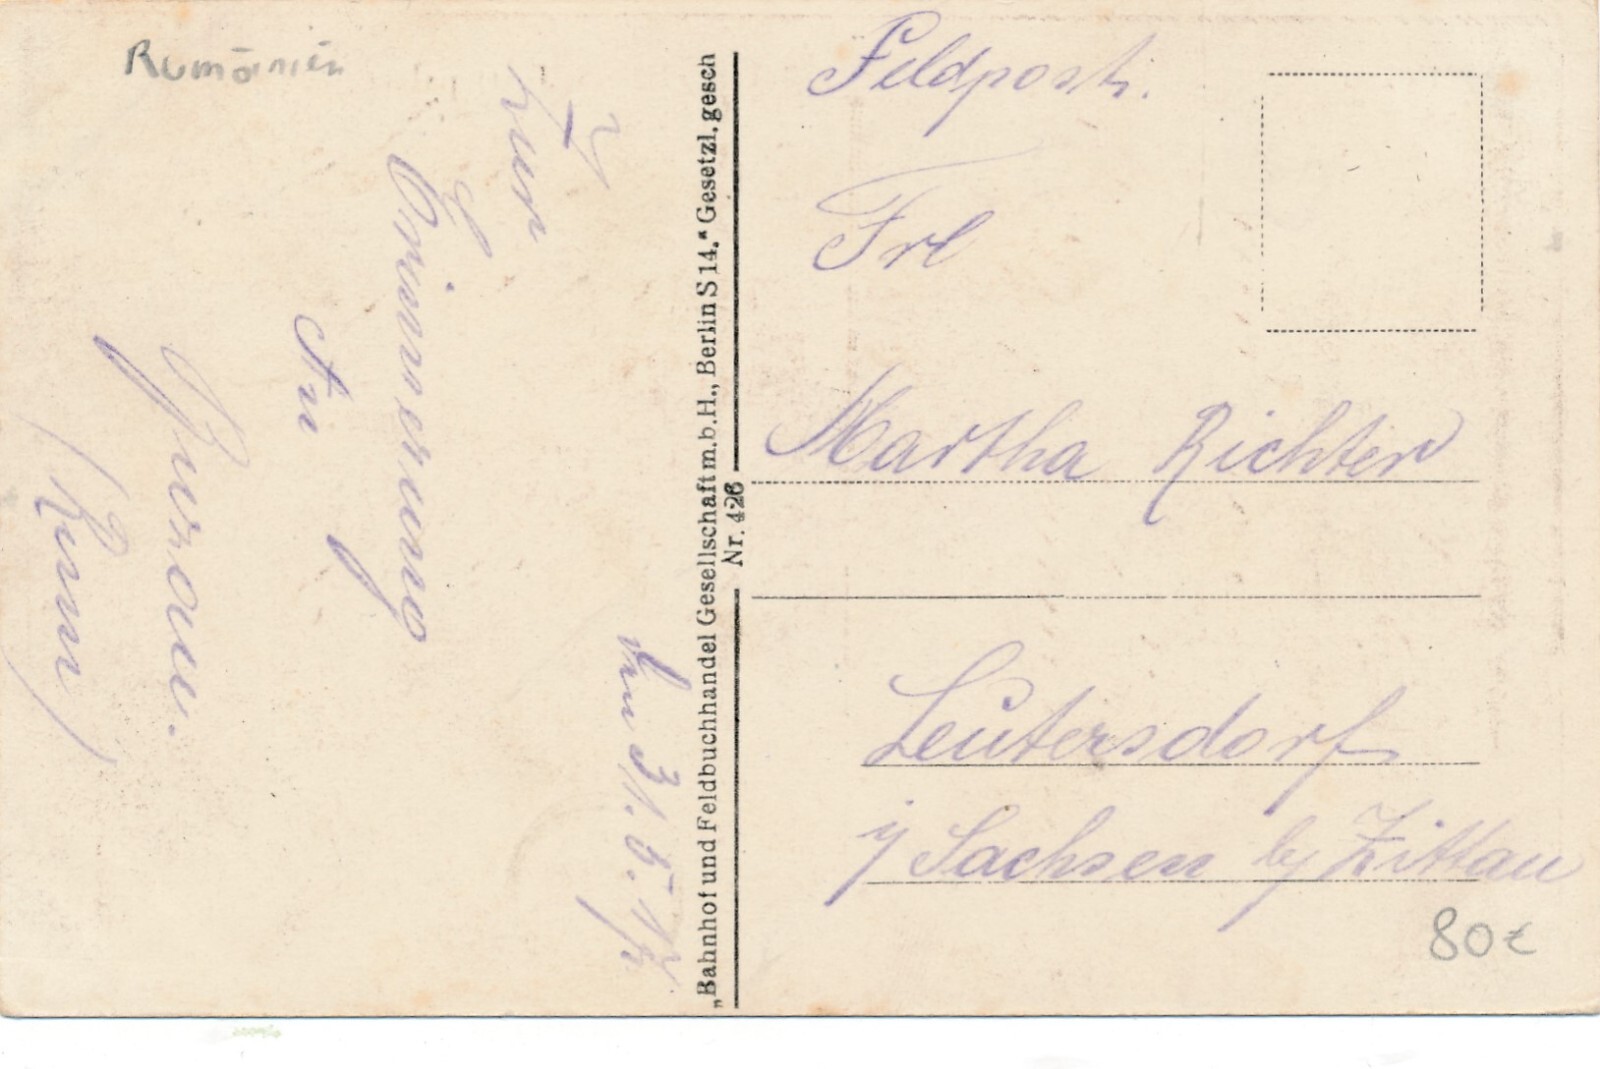 Rumänien
Zur
Erinnerung
An
(Rum)
31. 5. 17
„Bahnhof und Feldbuchhandel Gesellschaft m.b.H., Berlin S 14.“ Gesetzl. gesch
Nr. 426
Feldpost.
Frl
Martha Richter
Leutersdorf
i/ Sachsen b/ Zittau
80€